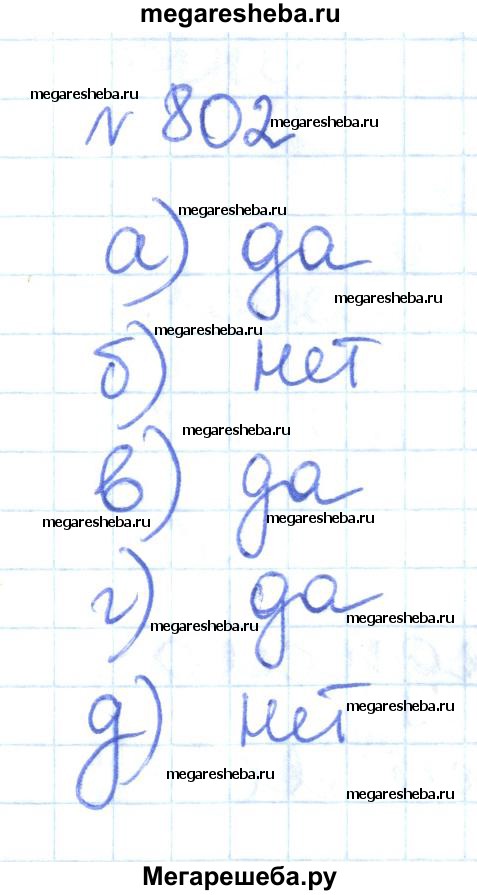 megaresheba.ru
megaresheba.ru
№ 802
megaresheba.ru
megaresheba.ru
а) да
megaresheba.ru
megaresheba.ru
б) нет
megaresheba.ru
в) да
megaresheba.ru
megaresheba.ru
г) да
megaresheba.ru
megaresheba.ru
д) нет
megaresheba.ru
megaresheba.ru
megaresheba.ru
Мегарешеба.ру